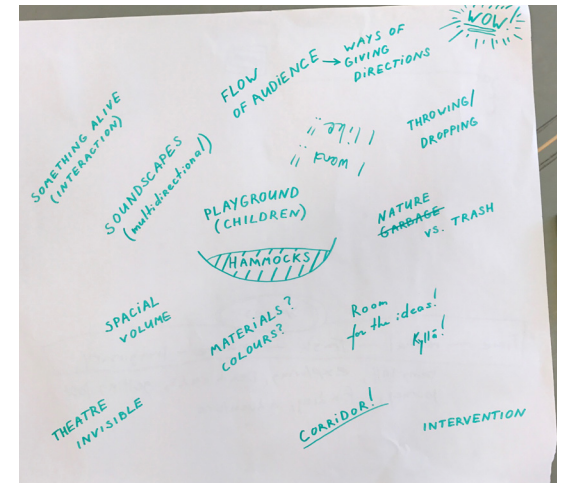 WOW!
FLOW
OF AUDIENCE → WAYS OF
GIVING
DIRECTIONS
SOMETHING ALIVE
(INTERACTION)
SOUNDSCAPES
(multidirectional)
"I like"
"I wonder"
THROWING/
DROPPING
PLAYGROUND
(CHILDREN)
HAMMOCKS
NATURE
GARBAGE
VS. TRASH
SPACIAL
VOLUME
MATERIALS?
COLOURS?
Room
for the ideas!
Kyllä!
THEATRE
INVISIBLE
CORRIDOR!
INTERVENTION